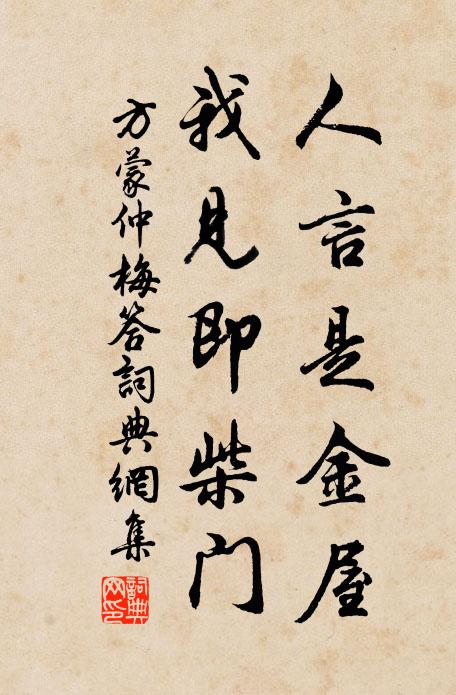 人言是金屋
我見即柴门
方蒙仲梅答詞典網集
詞典网印